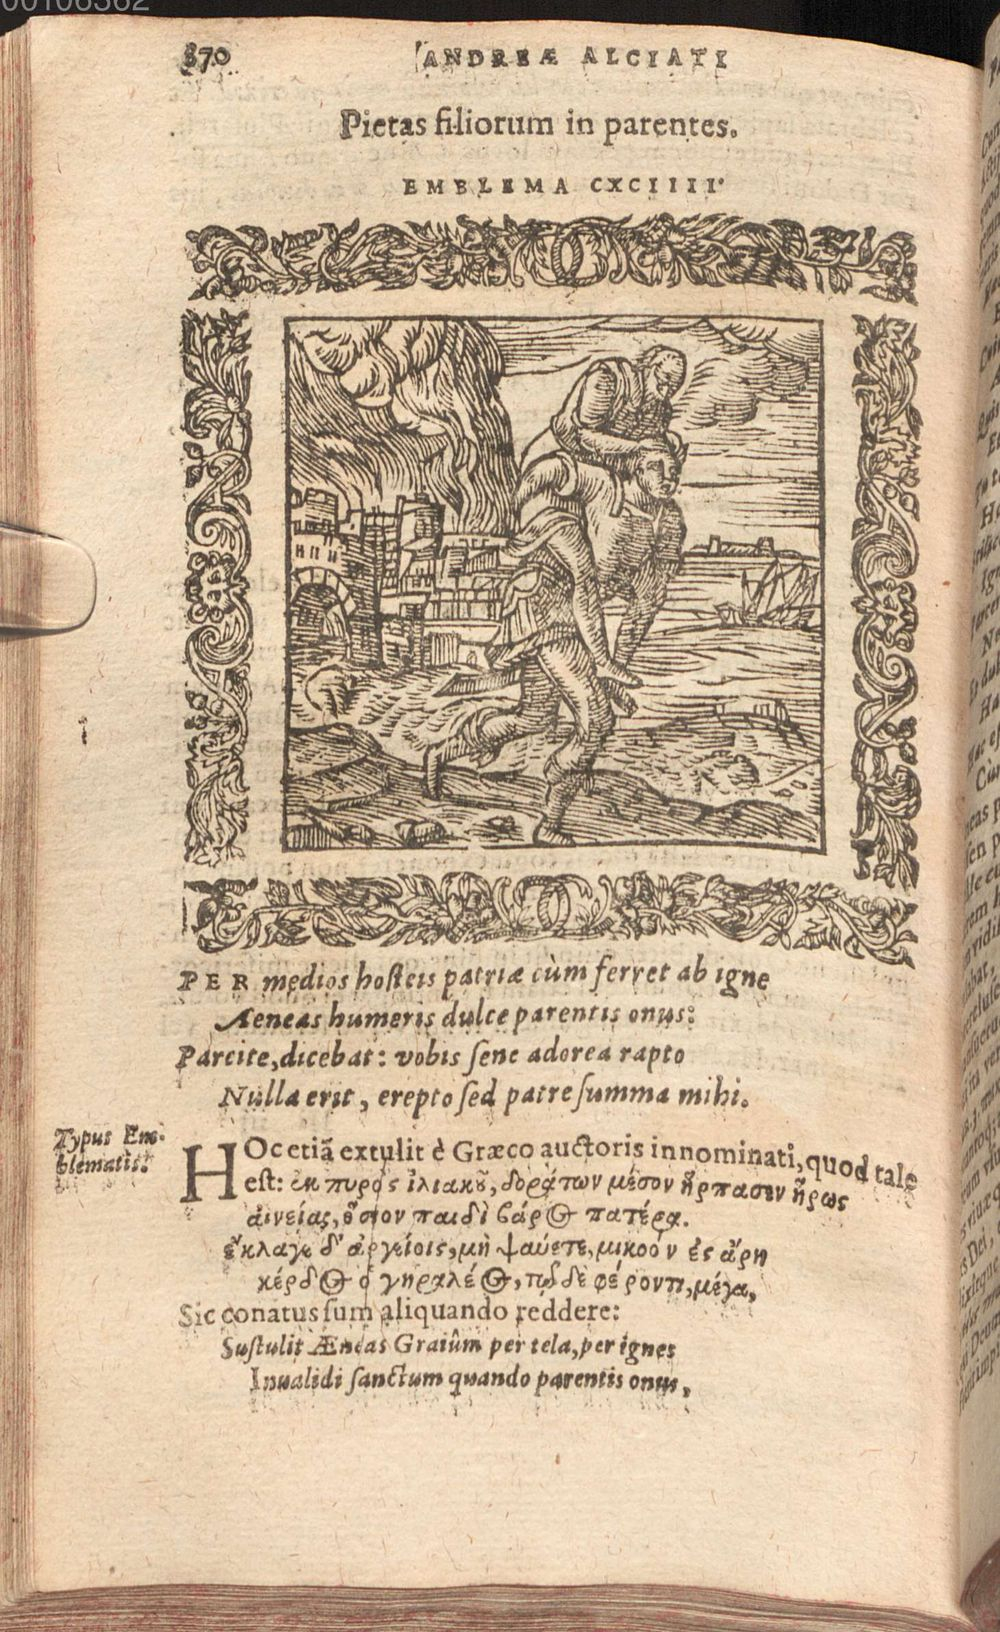 00106362
370 ANDREÆ ALCIATI
Pietas filiorum in parentes.
EMBLEMA CXCIIII.
PER medios hosteis patriæ cùm ferret ab igne
Aeneas humeris dulce parentis onus:
Parcite, dicebat: vobis sene adorea rapto
Nulla erit, erepto sed patre summa mihi.
Typus Em-
blematis.
HOc etiã extulit è Græco auctoris innominati, quod tale
est: ἐκ πυρὸς ἰλιακοῦ, δοράτων μέσον ἥρπασεν ἥρως
ἀινείας, ὅσιον παιδὶ βάρος πατέρα.
ἔκλαγε δ' ἀργείοις, μὴ ψαύετε, μικρὸν ἐς ἄρη
κέρδος ὁ γηραλέος, τῷ δὲ φέροντι, μέγα,
Sic conatus sum aliquando reddere:
Sustulit Æneas Graiûm per tela, per ignes
Inualidi sanctum quando parentis onus,